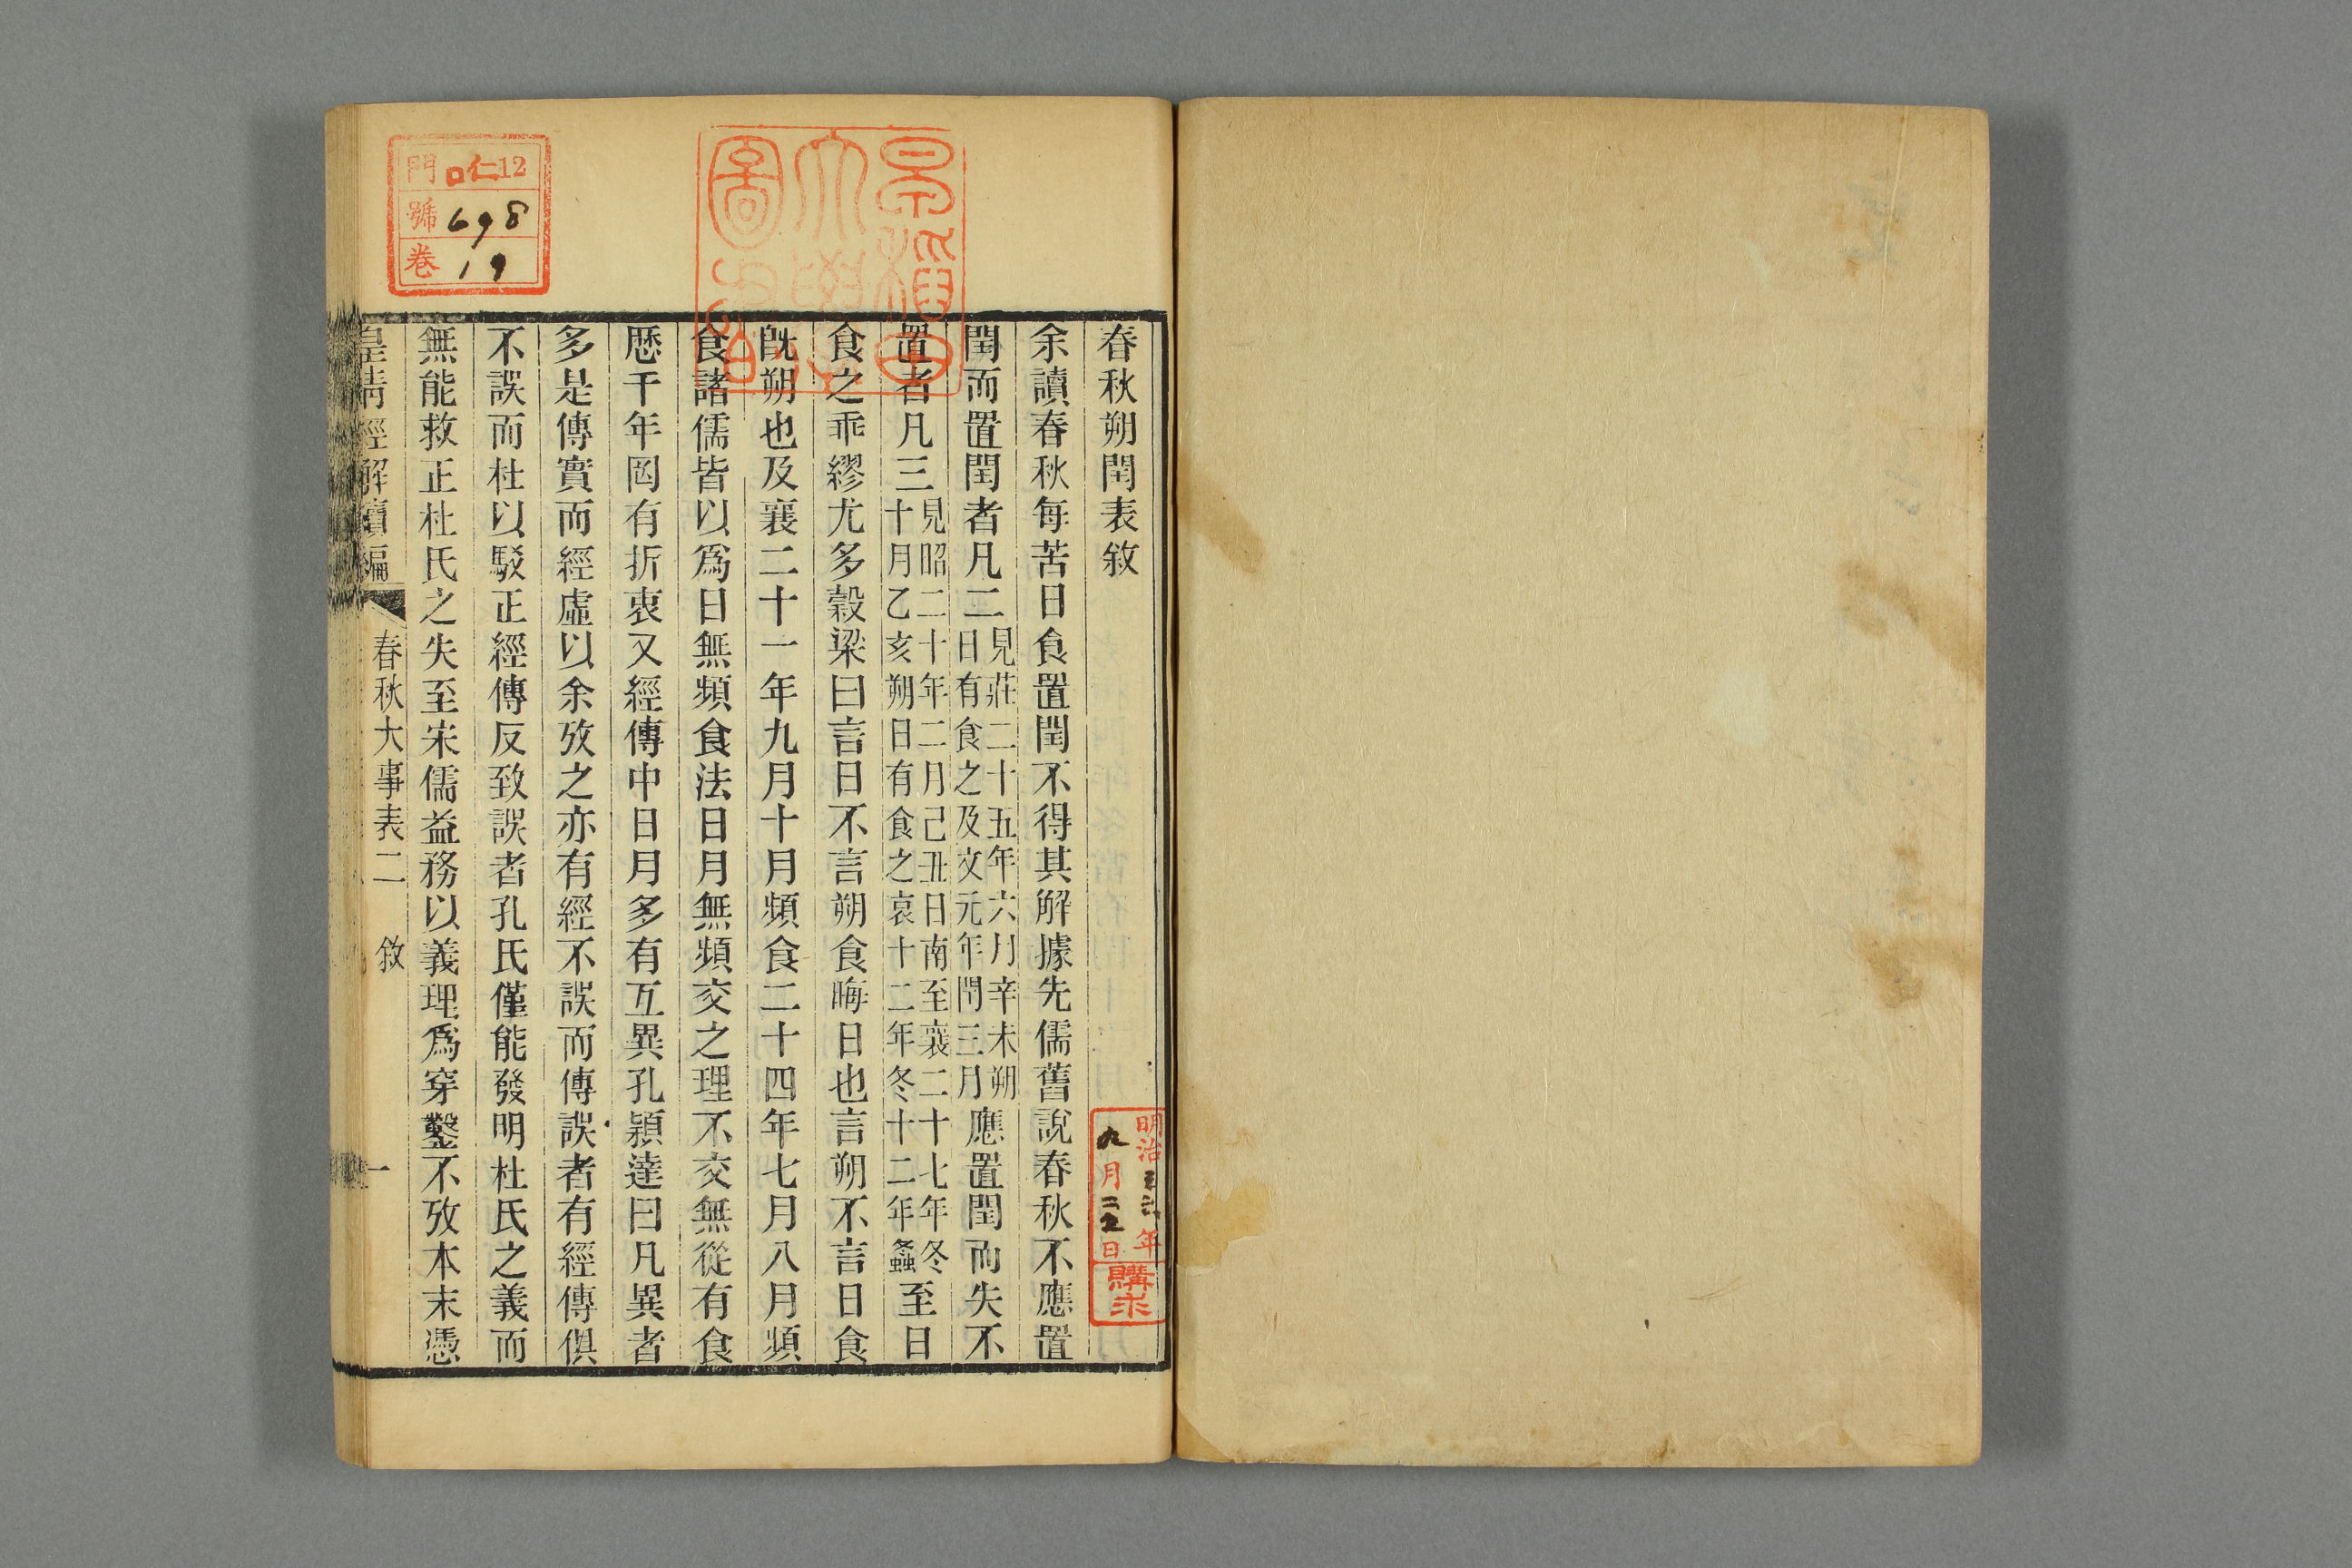 春秋朔閏表敘
余讀春秋每苦日食置閏不得其解據先儒舊說春秋不應置
閏而置閏者凡二見莊二十五年六月辛未朔日有食之及文元年閏三月應置閏而失不
置者凡三見昭二十年二月己丑日南至襄二十七年冬十月乙亥朔日有食之哀十二年冬十二年螽至日
食之乖繆尤多穀梁曰言日不言朔食晦日也言朔不言日食
旣朔也及襄二十一年九月十月頻食二十四年七月八月頻
食諸儒皆以爲日無頻食法日月無頻交之理不交無從有食
歷千年罔有折衷又經傳中日月多有互異孔穎達曰凡異者
多是傳實而經虛以余攷之亦有經不誤而傳誤者有經傳俱
不誤而杜以駁正經傳反致誤者孔氏僅能發明杜氏之義而
無能救正杜氏之失至宋儒益務以義理爲穿鑿不攷本末憑
皇淸經解續編 春秋大事表二 敘 一
門 口仁12
號 698
卷 19
早稻田大學圖書館
明治三六年
九月二九日
購求